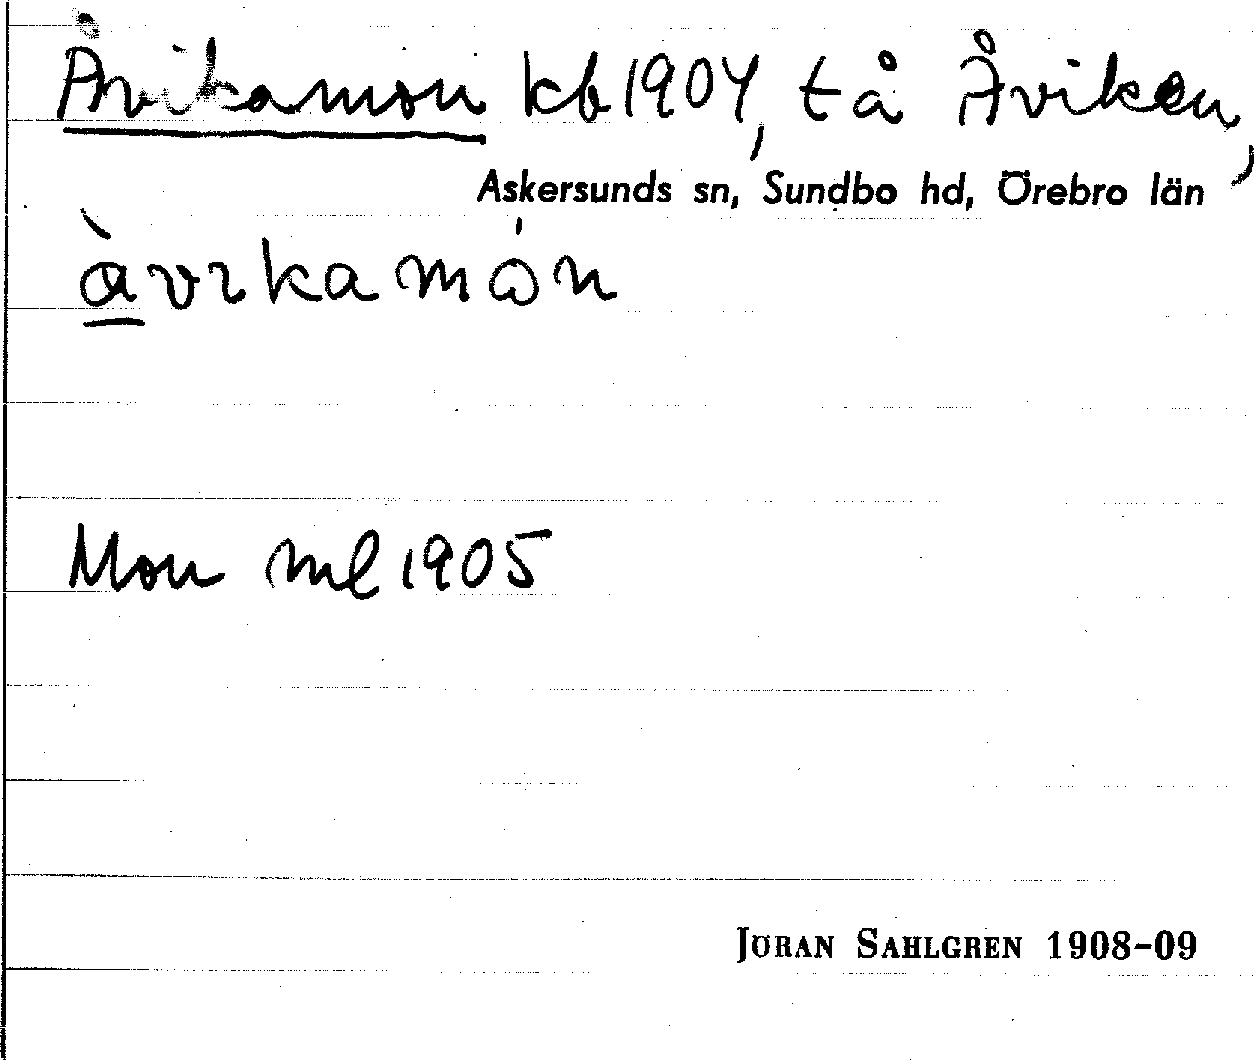 Åvikamon kb 1904, tå Åviken,
Askersunds sn, Sundbo hd, Örebro län
àvıkamón
Mon ml 1905
JÖRAN SAHLGREN 1908-09